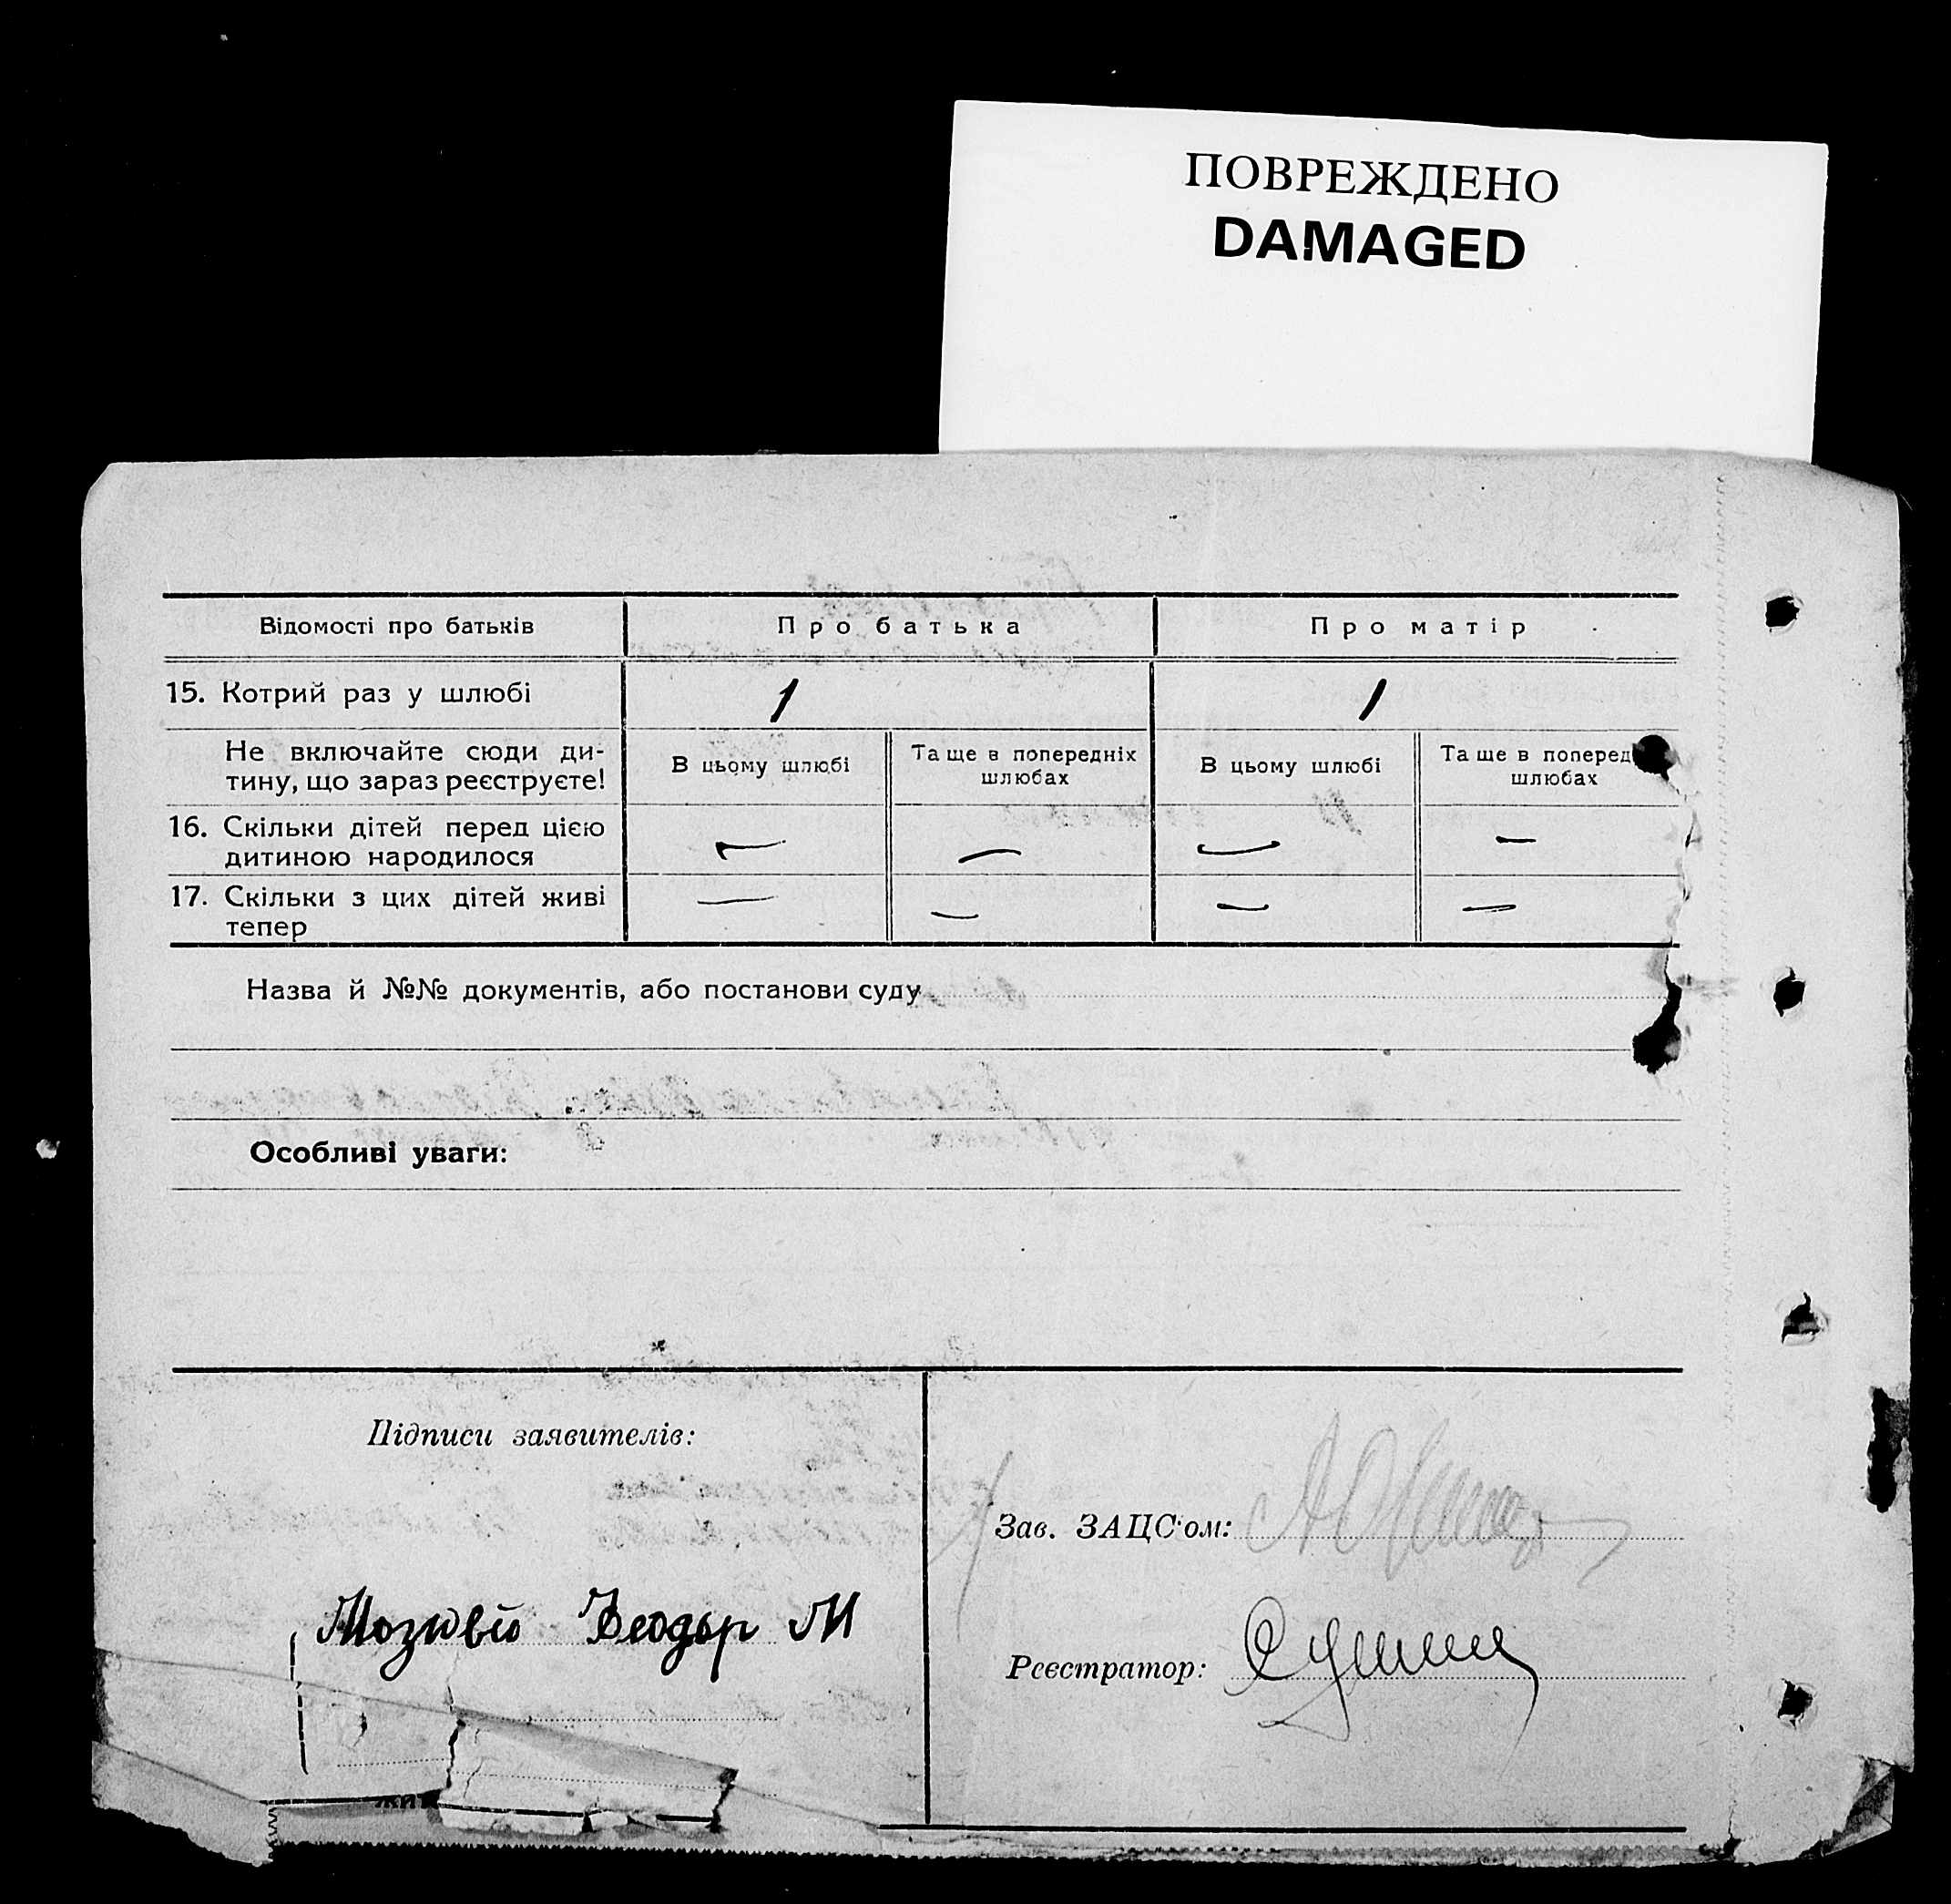 ПОВРЕЖДЕНО
DAMAGED
Відомості про батьків
Про батька
Про матір
15. Котрий раз у шлюбі
1
1
Не включайте сюди ди-
тину, що зараз реєструєте!
В цьому шлюбі
Та ще в попередніх
шлюбах
В цьому шлюбі
Та ще в поперед
шлюбах
16. Скільки дітей перед цією
дитиною народилося
— — — —
17. Скільки з цих дітей живі
тепер
— — — —
Назва й №№ документів, або постанови суду
Особливі уваги:
Підписи заявителів:
Зав. ЗАЦС'ом:
М
Реєстратор: